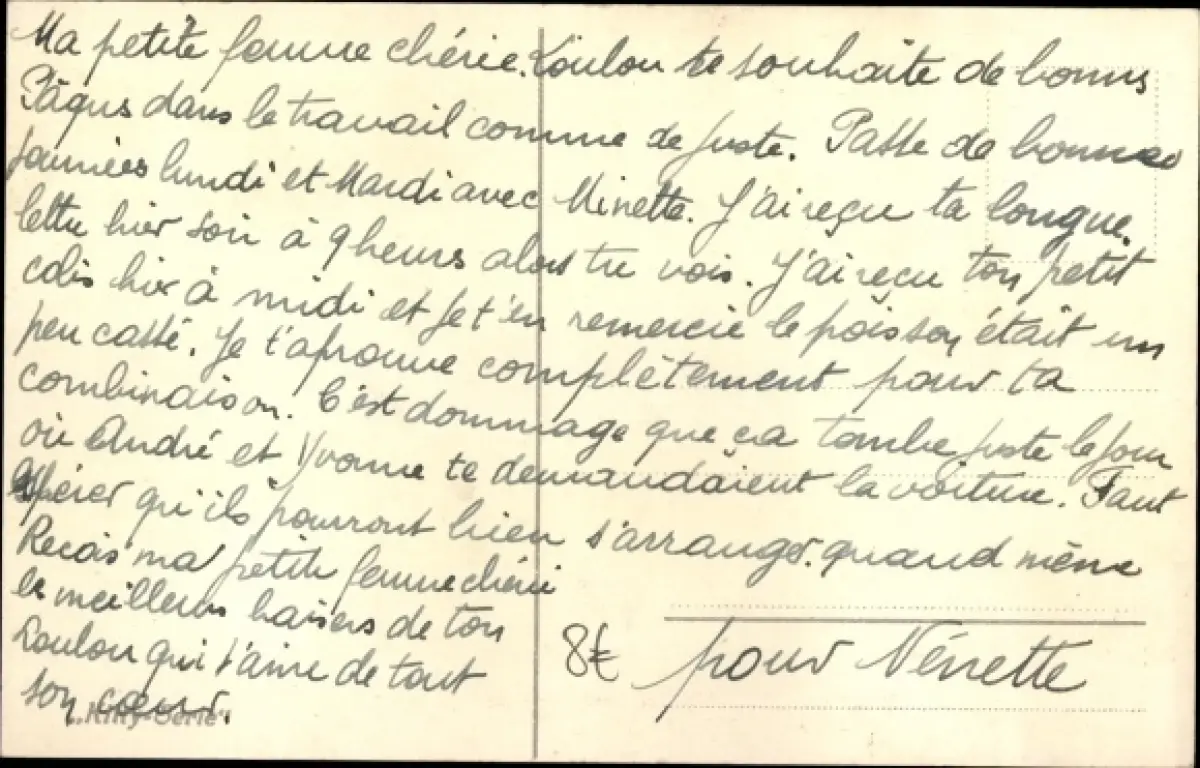 Ma petite femme chérie. Loulou te souhaite de bonnes
Pâques dans le travail comme de juste. Passe de bonnes
journées lundi et Mardi avec Ninette. J'ai reçu ta longue
lettre hier soir à 9 heures alors tu vois. J'ai reçu ton petit
colis hier à midi et je t'en remercie le poisson était un
peu cassé. Je t'aprouve complètement pour ta
combinaison. C'est dommage que ça tombe juste le jour
où André et Yvonne te demandaient la voiture. Faut
espérer qu'ils pourront bien s'arranger quand même
Reçois ma petite femme chérie
les meilleurs baisers de ton
Loulou qui t'aime de tout
son cœur.
8€
pour Nénette